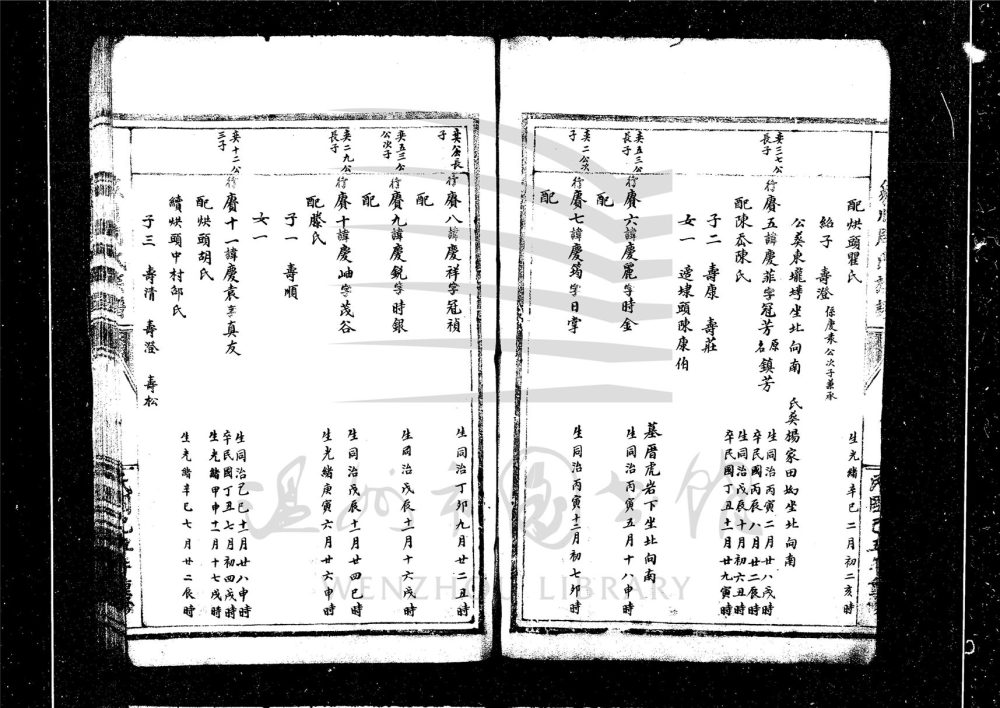 配烘頭瞿氏
生光緒辛巳二月初二亥時
紹子 壽澄 係慶袁公次子兼承
公葵東壠垟坐北向南 氏葵楊家田坳坐北向南
葵三七公長子
行賡五諱慶菲字冠芳原名鎮芳
生同治丙寅二月廿八戌時
卒民國丙辰八月廿二辰時
配陳岙陳氏
生同治戊辰十月初六丑時
卒民國丁丑十一月廿九寅時
子二 壽康 壽莊
女一 適埭頭陳康伯
墓厝虎岩下坐北向南
葵五三公長子
行賡六諱慶罷字時金
生同治丙寅五月十八申時
配
葵二公次子
行賡七諱慶筠字日掌
生同治丙寅十二月初七卯時
配
長子
行賡八諱慶祥字冠禎
生同治丁卯九月廿二丑時
配
葵五三公次子
行賡九諱慶銳字時銀
生同治戊辰十一月十六戌時
配
葵二九公長子
行賡十諱慶岫字茂谷
生同治戊辰十月廿四巳時
配滕氏
生光緒庚寅六月廿六申時
子一 壽順
女一
葵十二公三子
行賡十一諱慶袁字真友
生同治己巳十一月廿八申時
卒民國丁丑七月初四戌時
配烘頭胡氏
生光緒甲申十一月十七戌時
續烘頭中村邰氏
生光緒辛巳七月廿二辰時
子三 壽清 壽澄 壽松
温州市图书馆
WENZHOU LIBRARY